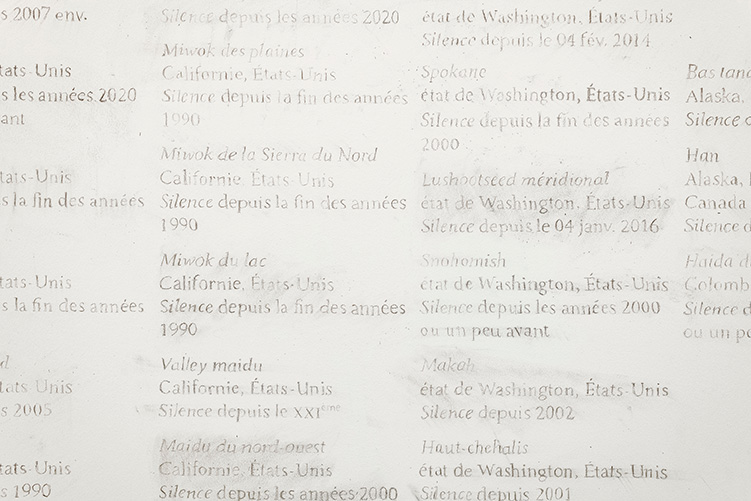 s 2007 env.
tats-Unis
s les années 2020
ant
tats-Unis
s la fin des années
tats-Unis
s la fin des années
d
tats-Unis
s 2005
tats-Unis
s 1990
Silence depuis les années 2020
Miwok des plaines
Californie, États-Unis
Silence depuis la fin des années
1990
Miwok de la Sierra du Nord
Californie, États-Unis
Silence depuis la fin des années
1990
Miwok du lac
Californie, États-Unis
Silence depuis la fin des années
1990
Valley maidu
Californie, États-Unis
Silence depuis le XXIème
Maidu du nord-ouest
Californie, États-Unis
Silence depuis les années 2000
état de Washington, États-Unis
Silence depuis le 04 fév. 2014
Spokane
état de Washington, États-Unis
Silence depuis la fin des années
2000
Lushootseed méridional
état de Washington, États-Unis
Silence depuis le 04 janv. 2016
Snohomish
état de Washington, États-Unis
Silence depuis les années 2000
ou un peu avant
Makah
état de Washington, États-Unis
Silence depuis 2002
Haut-chehalis
état de Washington, États-Unis
Silence depuis 2001
Bas tana
Alaska,
Silence d
Han
Alaska,
Canada
Silence d
Haida d
Colomb
Silence d
ou un p